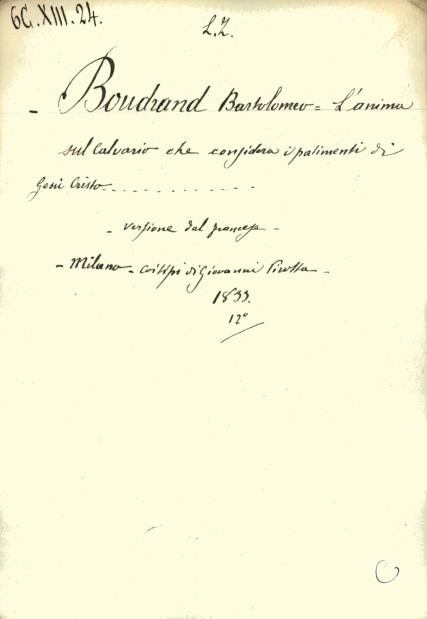 6C.XIII.24.
L.Z.
- Boudrand Bartolomeo = L'anima
sul Calvario che considera i patimenti di
Gesù Cristo . . . . . . . . . . . . .
- versione dal francese -
- Milano - coi tipi di Giovanni Pirotta -
1833.
12°
C